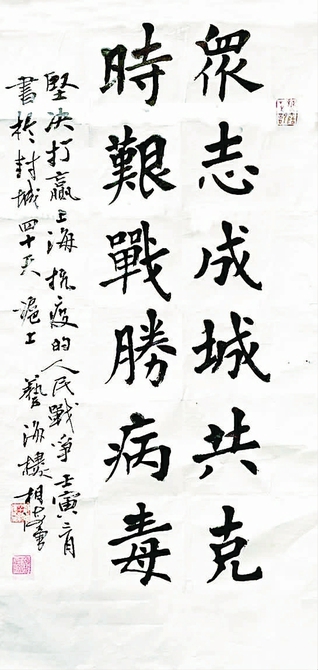 眾志成城共克
時艱戰勝病毒
堅决打贏上海抗疫的人民戰爭壬寅二月
書於封城四十天 滬上 藝海樓